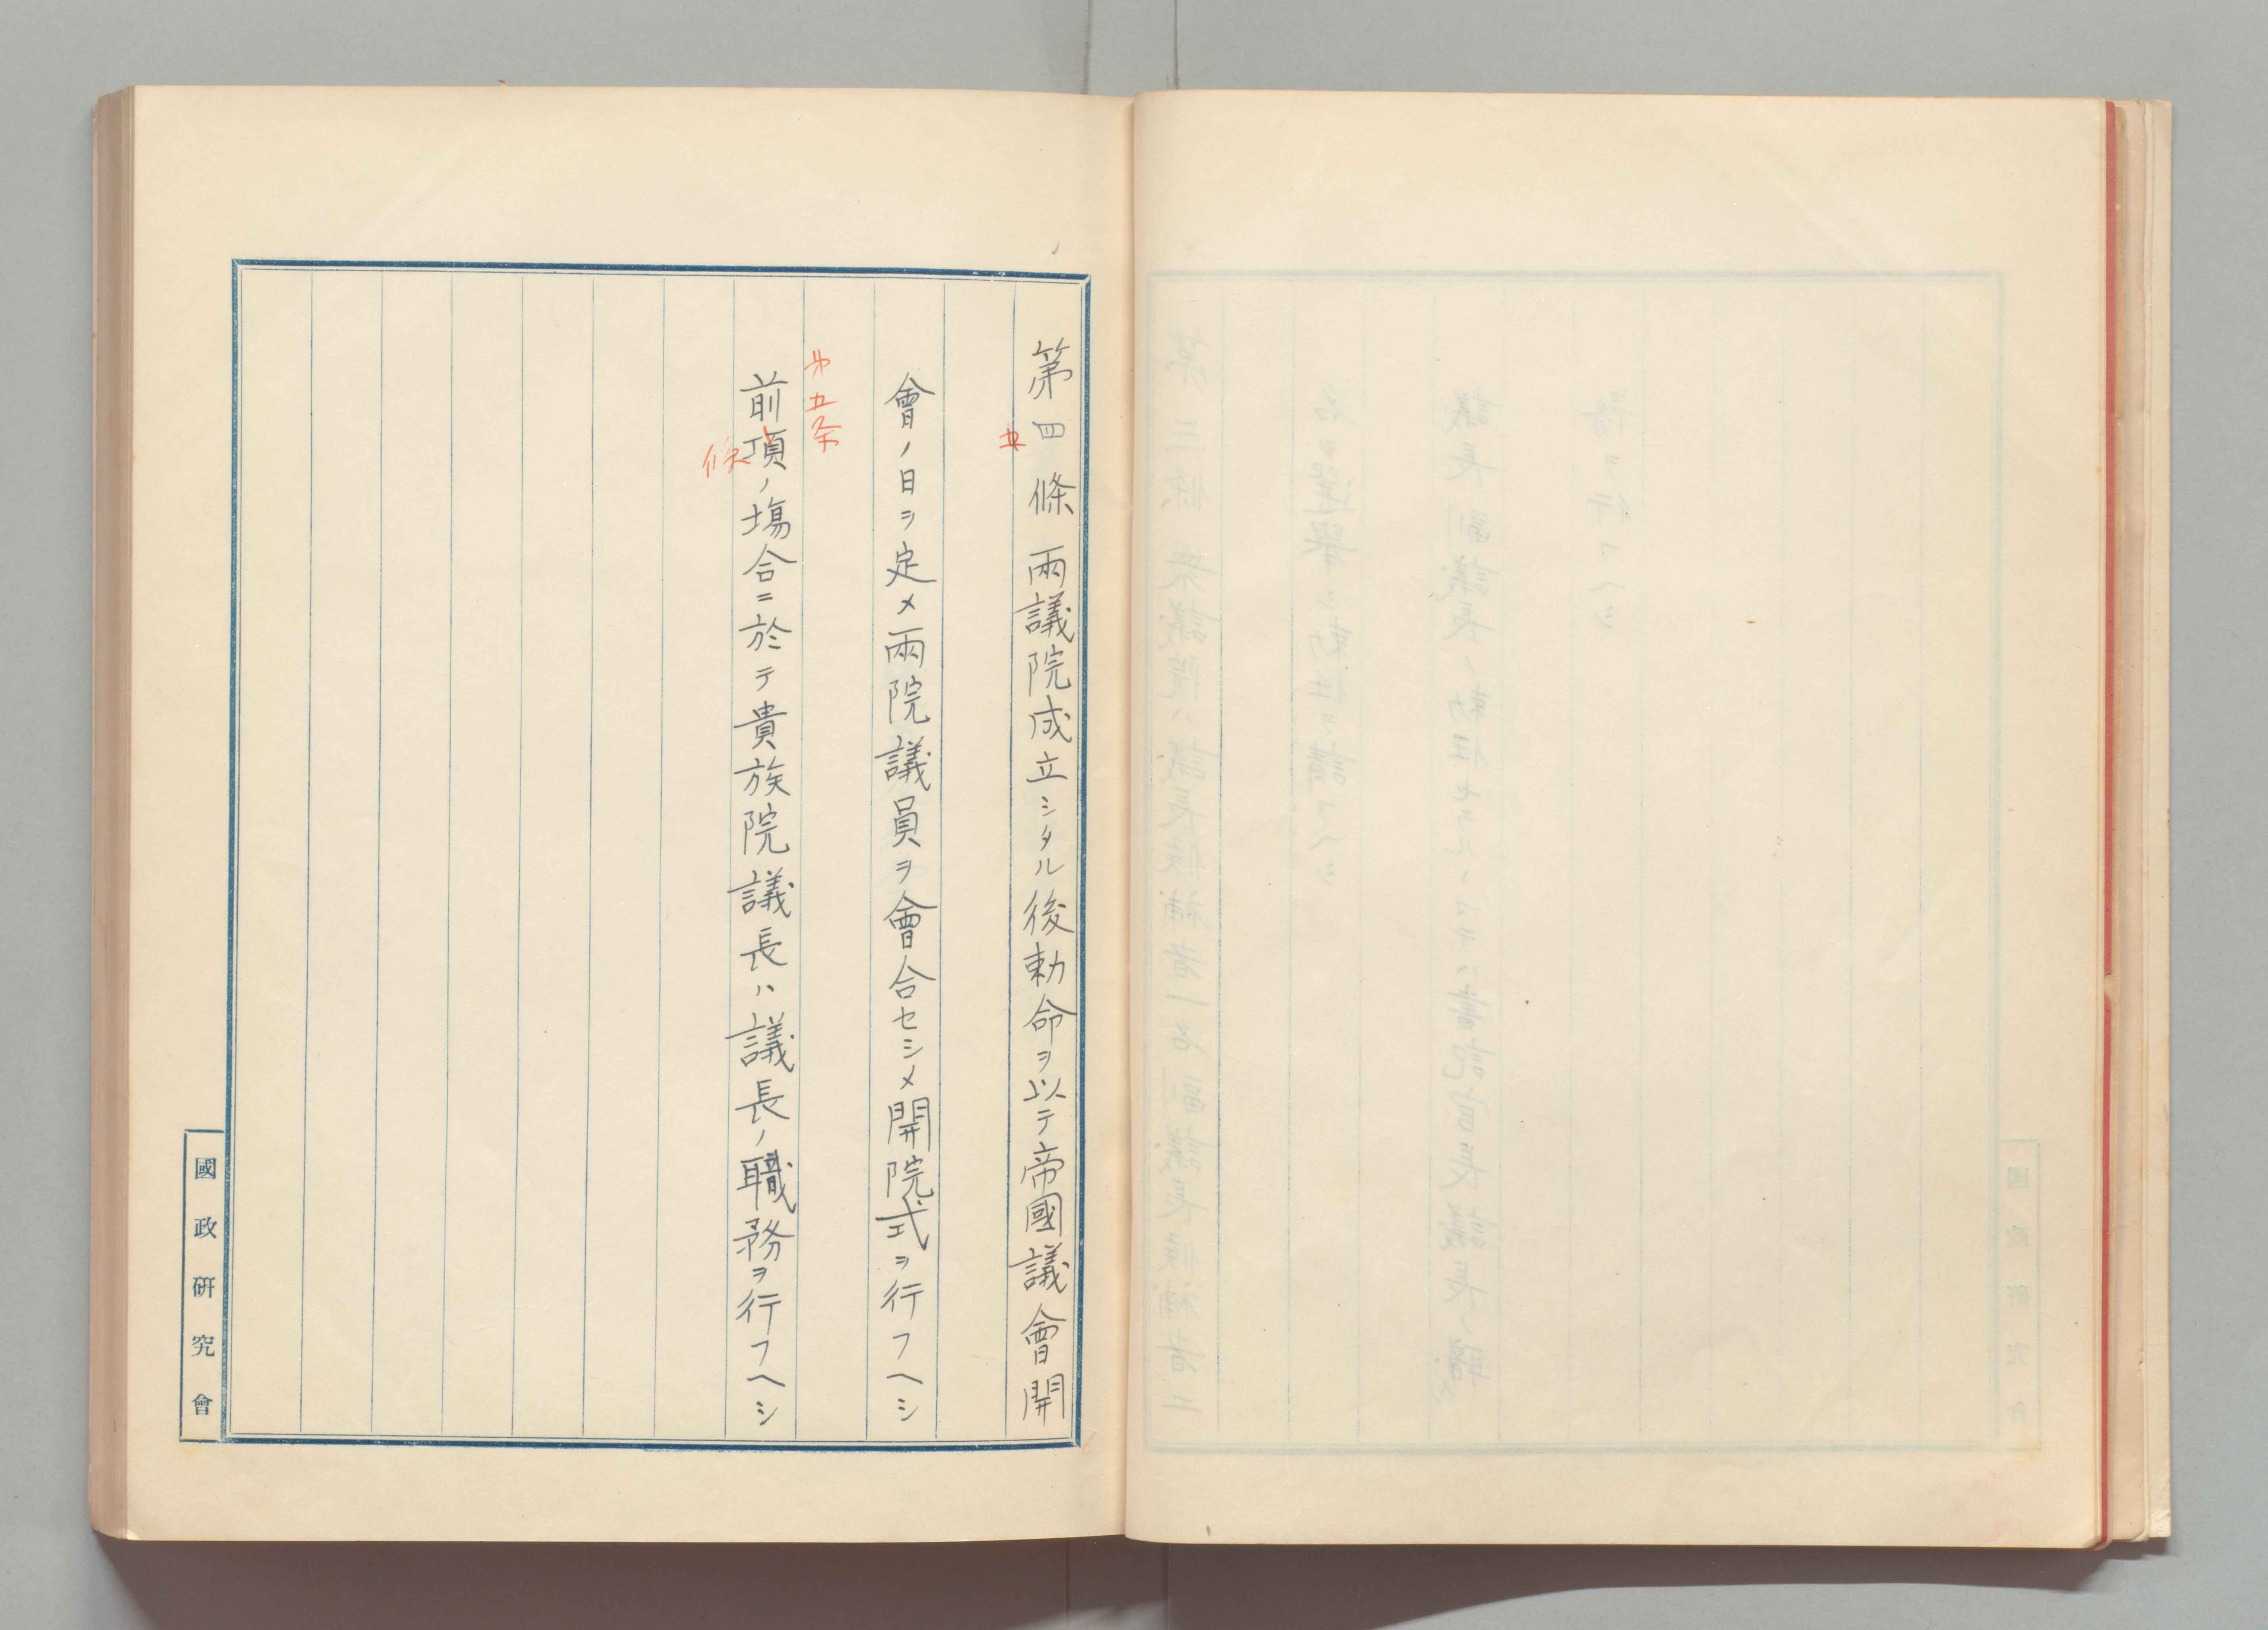 第四條 兩議院成立シタル後勅命ヲ以テ帝國議會開
五
會ノ日ヲ定メ兩院議員ヲ會合セシメ開院式ヲ行フヘシ
第五条
前項ノ塲合ニ於テ貴族院議長ハ議長ノ職務ヲ行フヘシ
條
國政硏究會